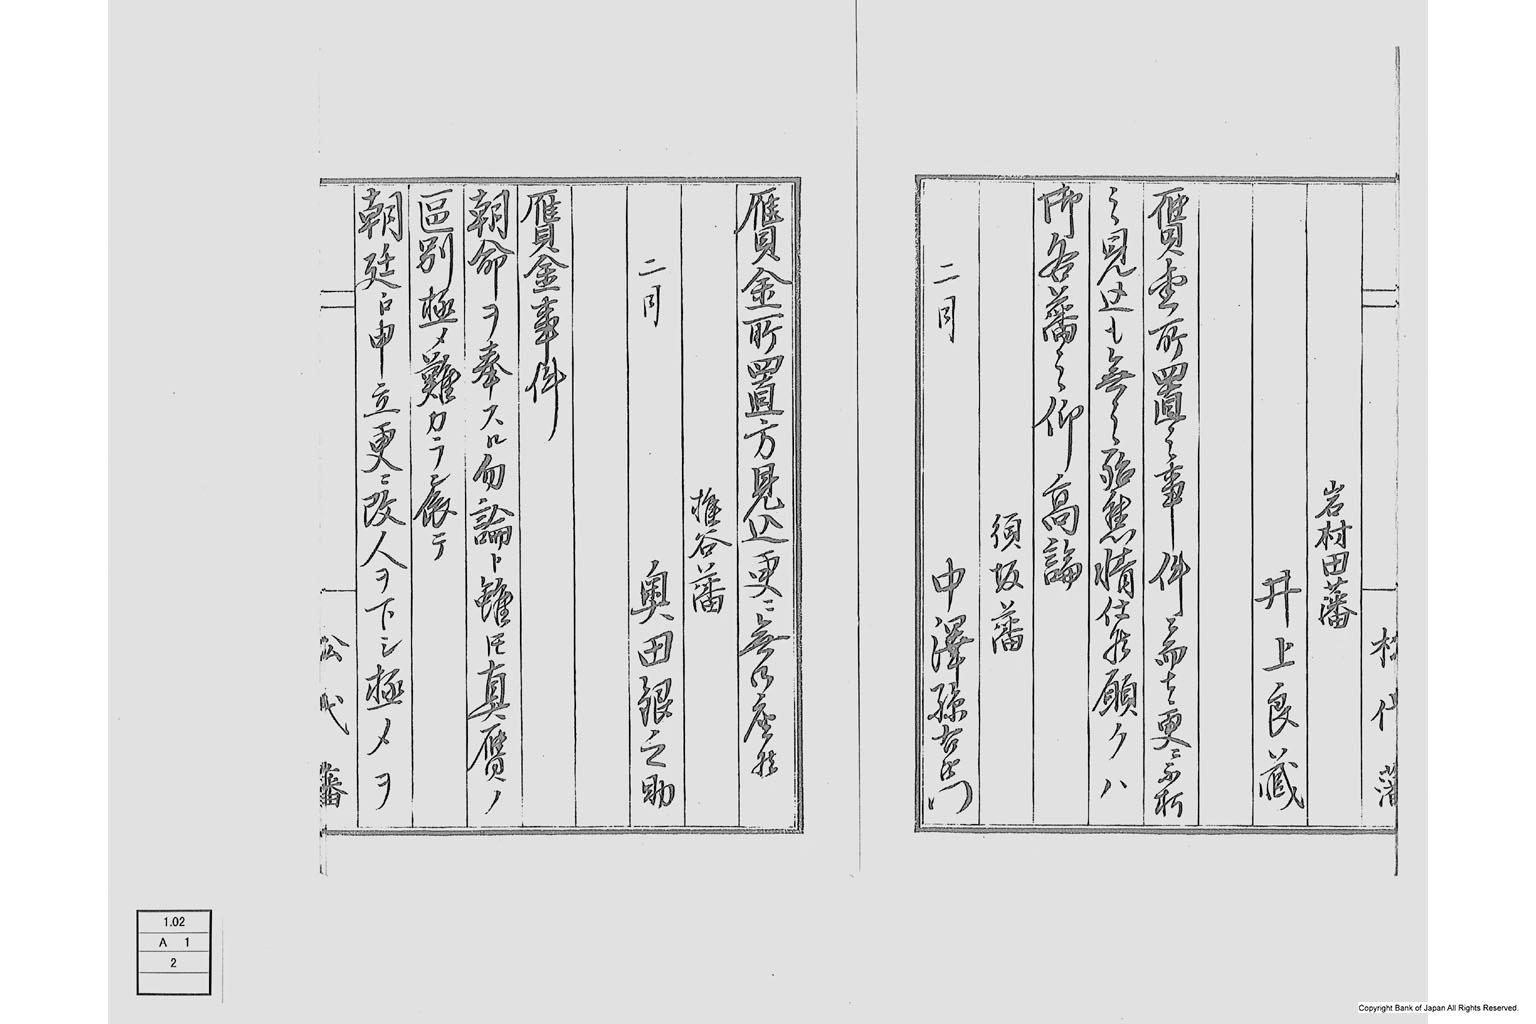 岩村田藩
井上良藏
贋金所置之事件ニ而者更ニ不折
之見込も無之殆焦情仕候願クハ
御各藩之仰高論
須坂藩
二月 中澤孫右衛門
贋金所置方見込更ニ無御座候
椎谷藩
二月 奥田銀之助
贋金事件
朝命ヲ奉スル勿論ト雖トモ真贋ノ
區別極メ難カラン依テ
朝廷ニ申立更ニ改人ヲ下シ極メヲ
松代藩
松代藩
1.02
A 1
2
Copyright Bank of Japan All Rights Reserved.